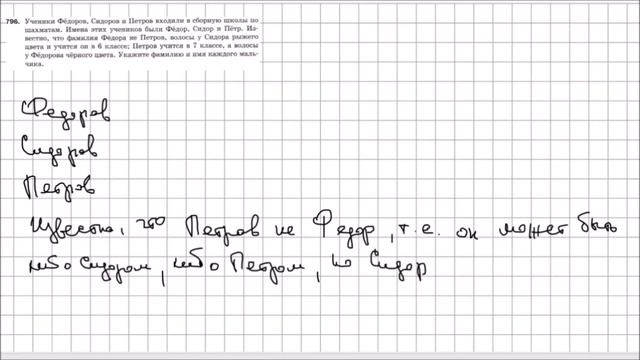 796. Ученики Фёдоров, Сидоров и Петров входили в сборную школы по
шахматам. Имена этих учеников были Фёдор, Сидор и Пётр. Из-
вестно, что фамилия Фёдора не Петров, волосы у Сидора рыжего
цвета и учится он в 6 классе; Петров учится в 7 классе, а волосы
у Фёдорова чёрного цвета. Укажите фамилию и имя каждого маль-
чика.
Федоров
Сидоров
Петров
Известно, что Петров не Федор, т.е. он может быть
либо Сидором, либо Петром, но Сидор